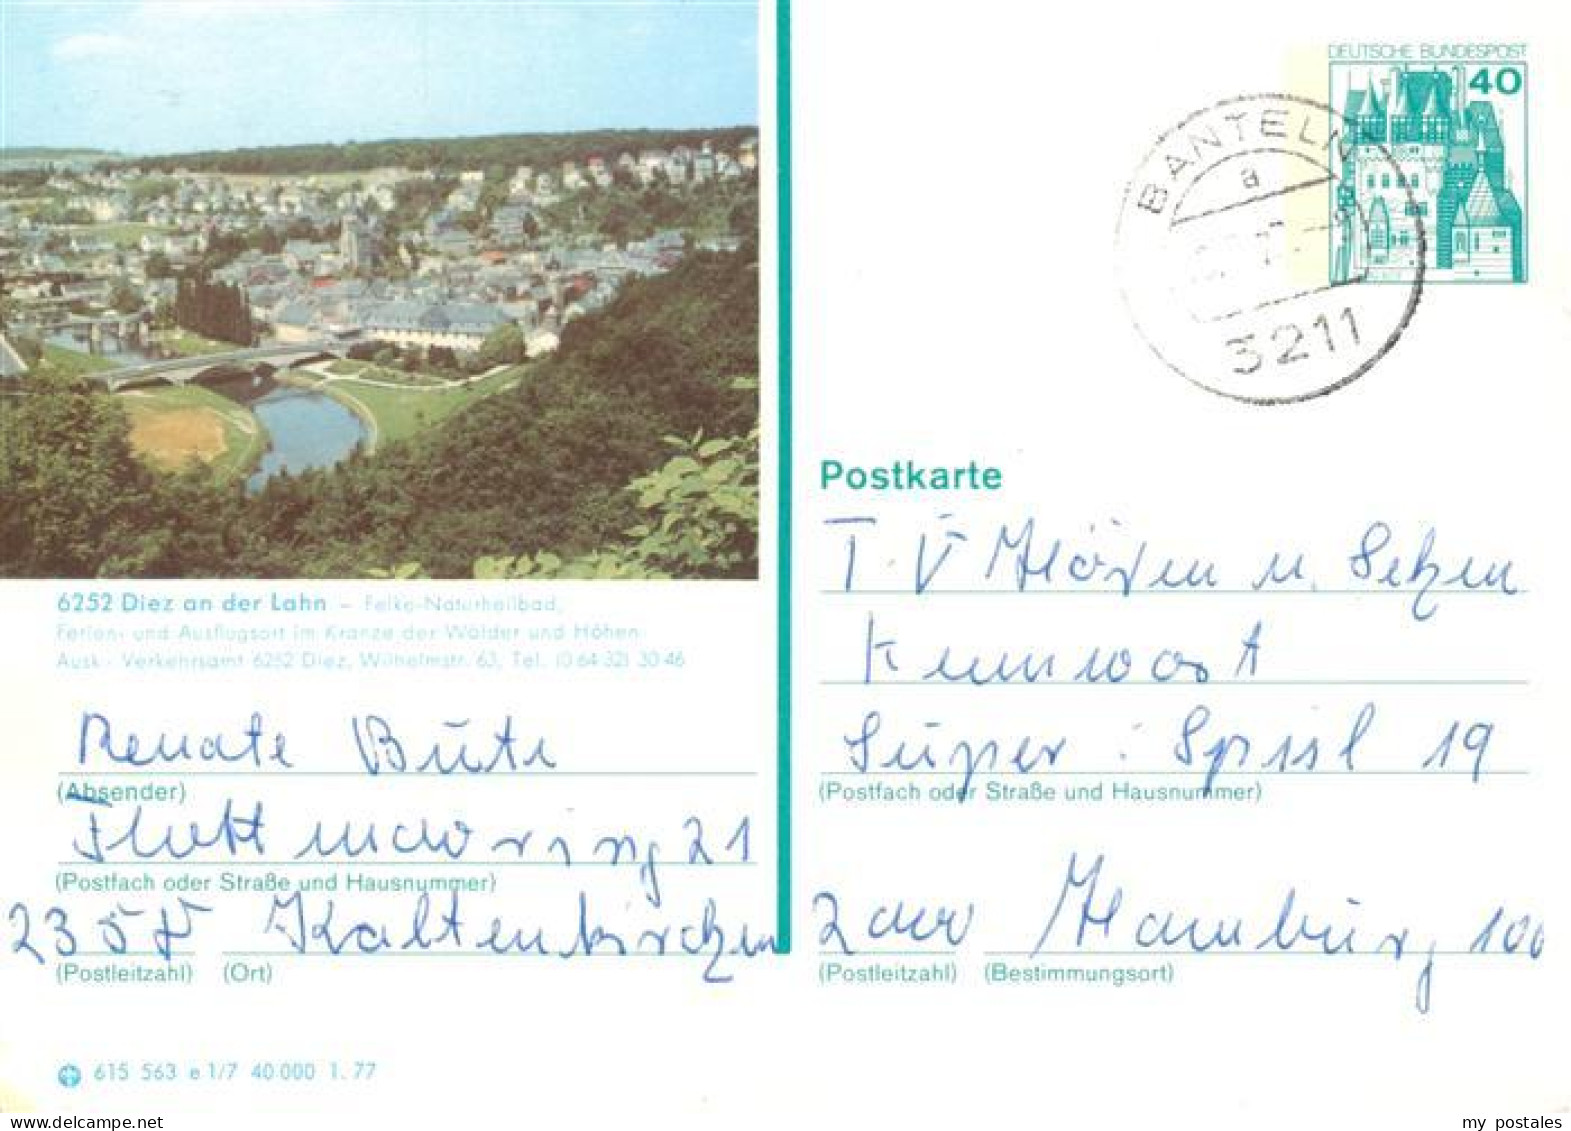 DEUTSCHE BUNDESPOST
40
BANTELN
a
3211
6252 Diez an der Lahn – Felke-Naturheilbad,
Ferien- und Ausflugsort im Kranze der Wälder und Höhen
Ausk.: Verkehrsamt 6252 Diez, Wilhelmstr. 63, Tel. (0 64 32) 30 46
Renate
(Absender)
21
(Postfach oder Straße und Hausnummer)
Kaltenkirchen
(Postleitzahl) (Ort)
615 563 e 1/7 40 000 1. 77
Postkarte
T.V Hören u. Sehen
Kennwort
Super: 19
(Postfach oder Straße und Hausnummer)
2000 Hamburg 100
(Postleitzahl) (Bestimmungsort)
my postales